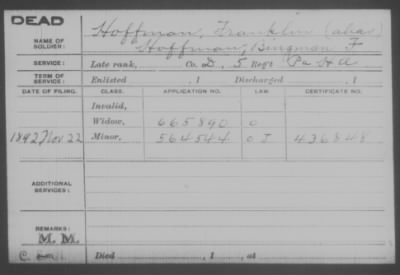 DEAD
Hoffman, Franklin (alias)
NAME OF SOLDIER: Hoffman, Bingman F
SERVICE: Late rank, Co. D, 5 Reg't Pa H A
TERM OF SERVICE: Enlisted , 1 Discharged , 1
DATE OF FILING. CLASS. APPLICATION NO. LAW. CERTIFICATE NO.
Invalid,
Widow, 665890 O
1892 Nov 22 Minor, 564544 O I 436848
ADDITIONAL SERVICES:
REMARKS:
M. M.
C. Died , 1 , at